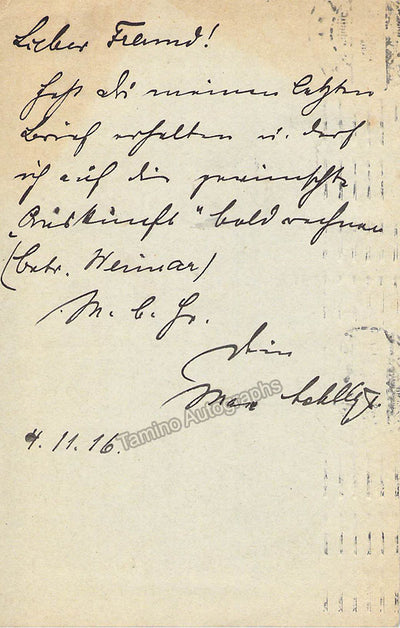 Lieber Freund!
Hast Du meinen letzten
Brief erhalten u. darf
ich auf die gewünschte
„Auskunft" bald rechnen
(betr. Weimar)
M. b. Gr.
Dein
Max
4.11.16.
Tamino Autographs